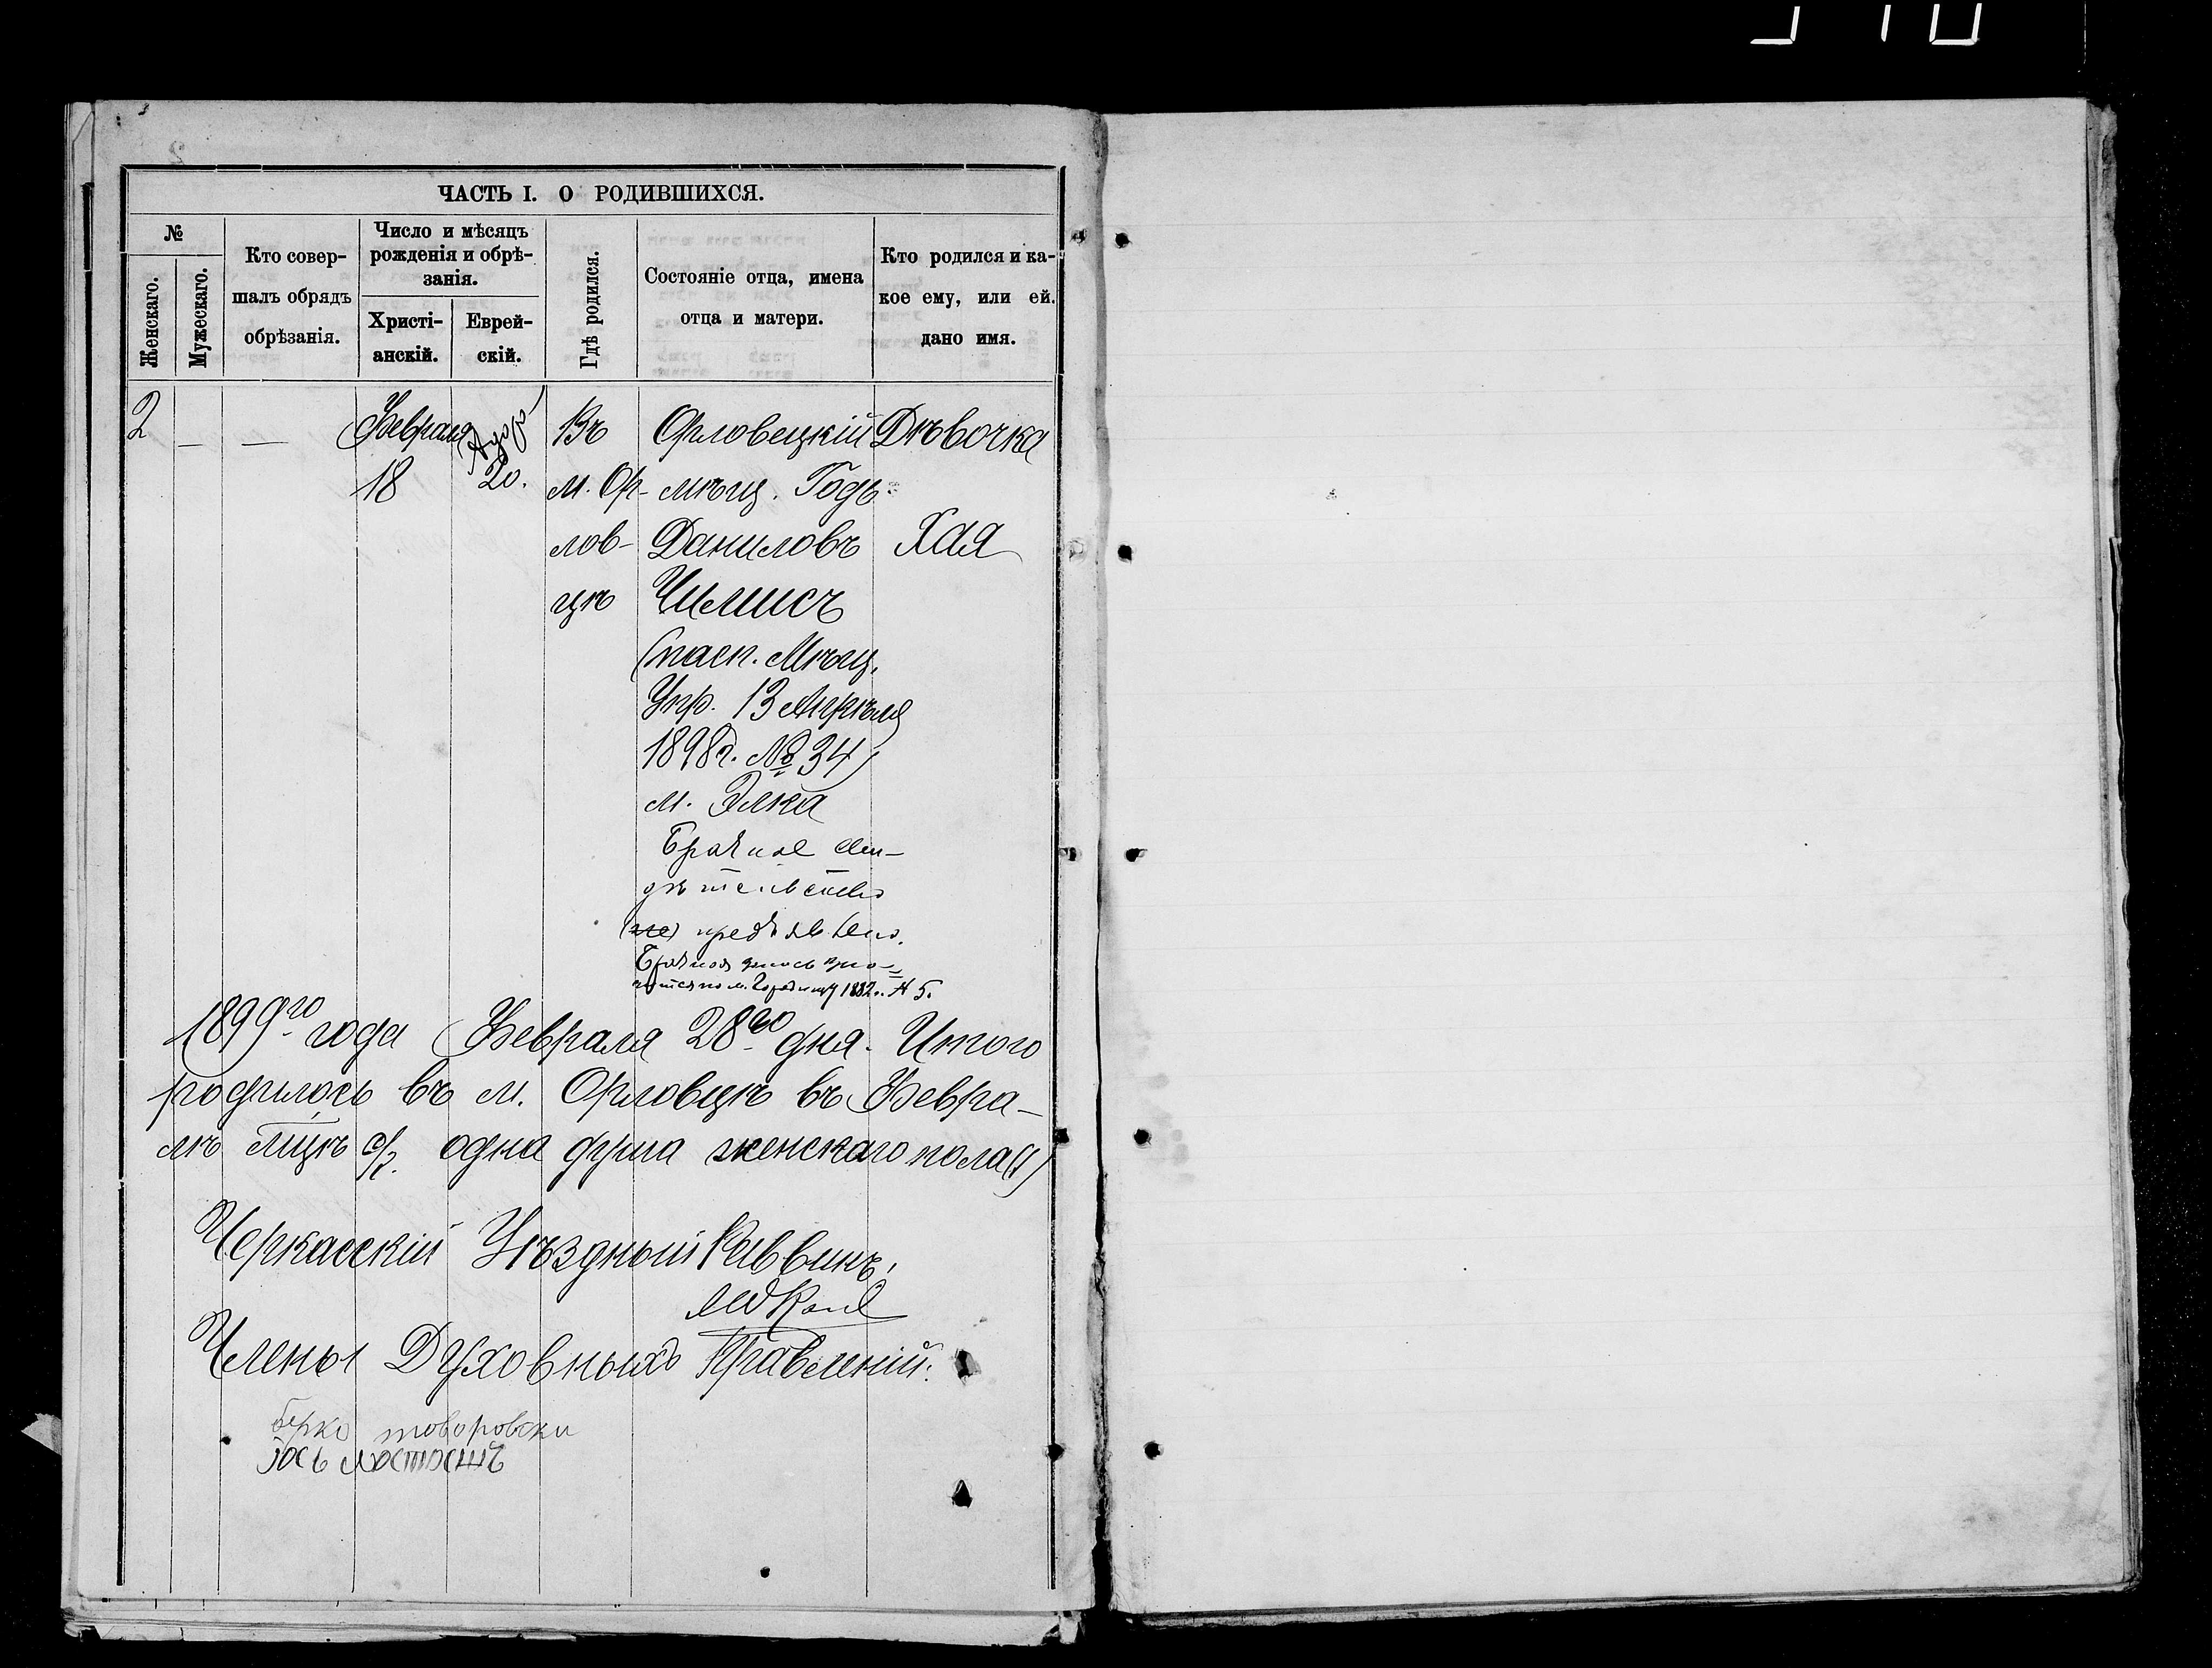 ЧАСТЬ I. О РОДИВШИХСЯ.
№
Женскаго.
Мужескаго.
Кто совер-
шалъ обрядъ
обрѣзанія.
Число и мѣсяцъ
рожденія и обрѣ-
занія.
Христі-
анскій.
Еврей-
скій.
Гдѣ родился.
Состояніе отца, имена
отца и матери.
Кто родился и ка-
кое ему, или ей.
дано имя.
2
—
—
Февраля
18
Адоръ
20.
Въ
м. Ор-
лов-
цѣ
Орловецкій
мѣщ. Годъ
Даниловъ
Чилисъ
(пасп. Мѣщ.
Упр. 13 Апрѣля
1898 г. № 34)
м. Элка
Брачное сви-
дѣтельство
(не) предъявлено.
Брачная запись
м. Городищу 1882 г. № 5.
Дѣвочка
Хая
1899го года Февраля 28го дня. Итого
родилось въ м. Орловцѣ въ Февра-
лѣ мцѣ с/г. одна душа женскаго пола (1)
Черкасскій Уѣздный Раввинъ
Члены Духовныхъ Правленій:
Берко товоровски